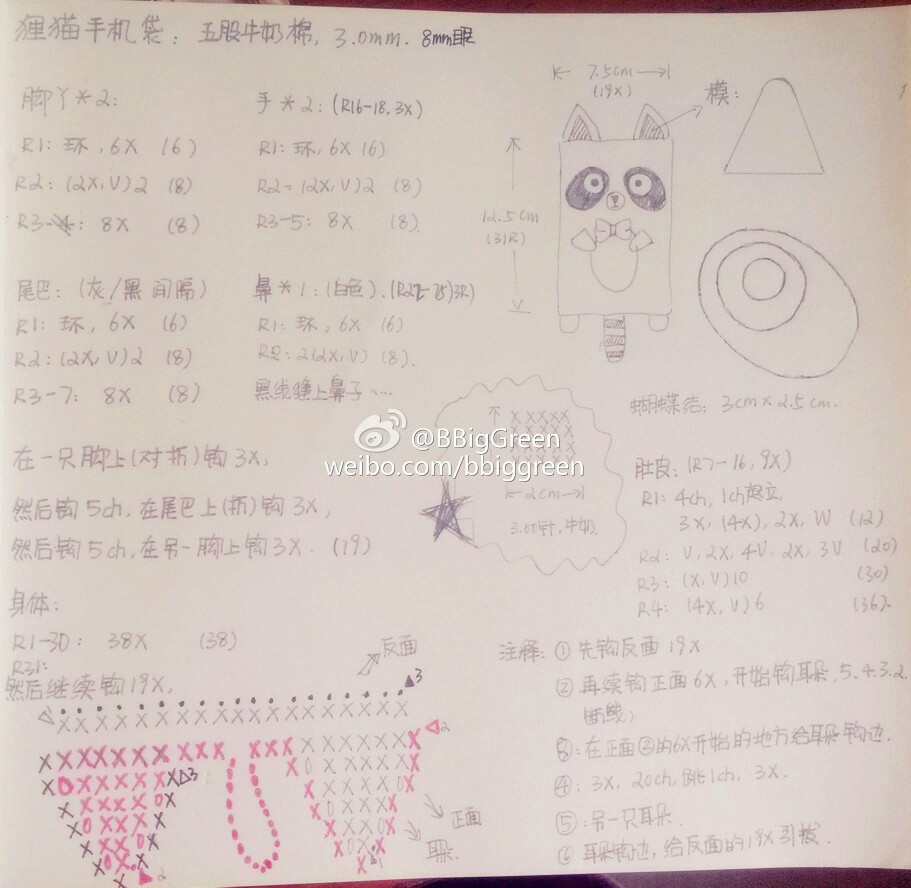 狸猫手机袋：五股牛奶棉，3.0mm. 8mm眼
脚丫*2：
R1：环，6X (6)
R2：(2X,V)2 (8)
R3-4：8X (8)
手*2：(R16-18,3X)
R1：环，6X (6)
R2：(2X,V)2 (8)
R3-5：8X (8).
尾巴：(灰/黑 间隔)
R1：环，6X (6)
R2：(2X,V)2 (8)
R3-7：8X (8)
鼻*1：(白色).(R22-25)3R)
R1：环，6X (6)
R2：2(2X,V) (8).
黑线缝上鼻子…
7.5cm
(19X)
模：
12.5cm
(31R)
蝴蝶结：3cm×2.5cm.
XXXXX
2cm
3.00针，牛奶.
@BBigGreen
weibo.com/bbiggreen
在一只脚上(对折)钩3X，
然后钩5ch,在尾巴上(折)钩3X，
然后钩5ch,在另一脚上钩3X. (19)
肚皮：(R7-16,9X)
R1：4ch,1ch起立,
3X,(4X),2X,W (12)
R2：V,2X,4V,2X,3V (20)
R3：(X,V)10 (30)
R4：(4X,V)6 (36)
身体：
R1-30：38X (38)
R31：
然后继续钩19X，
反面
3
XXXXXXXXXXXXXXXXXXX
2
3
正面
耳朵.
1
2
注释：① 先钩反面19X
② 再续钩正面6X,开始钩耳朵,5.4.3.2.
断线；
③：在正面②的6X开始的地方给耳朵钩边.
④：3X, 20ch,跳1ch, 3X.
⑤：另一只耳朵.
⑥ 耳朵钩边,给反面的19X引拔.